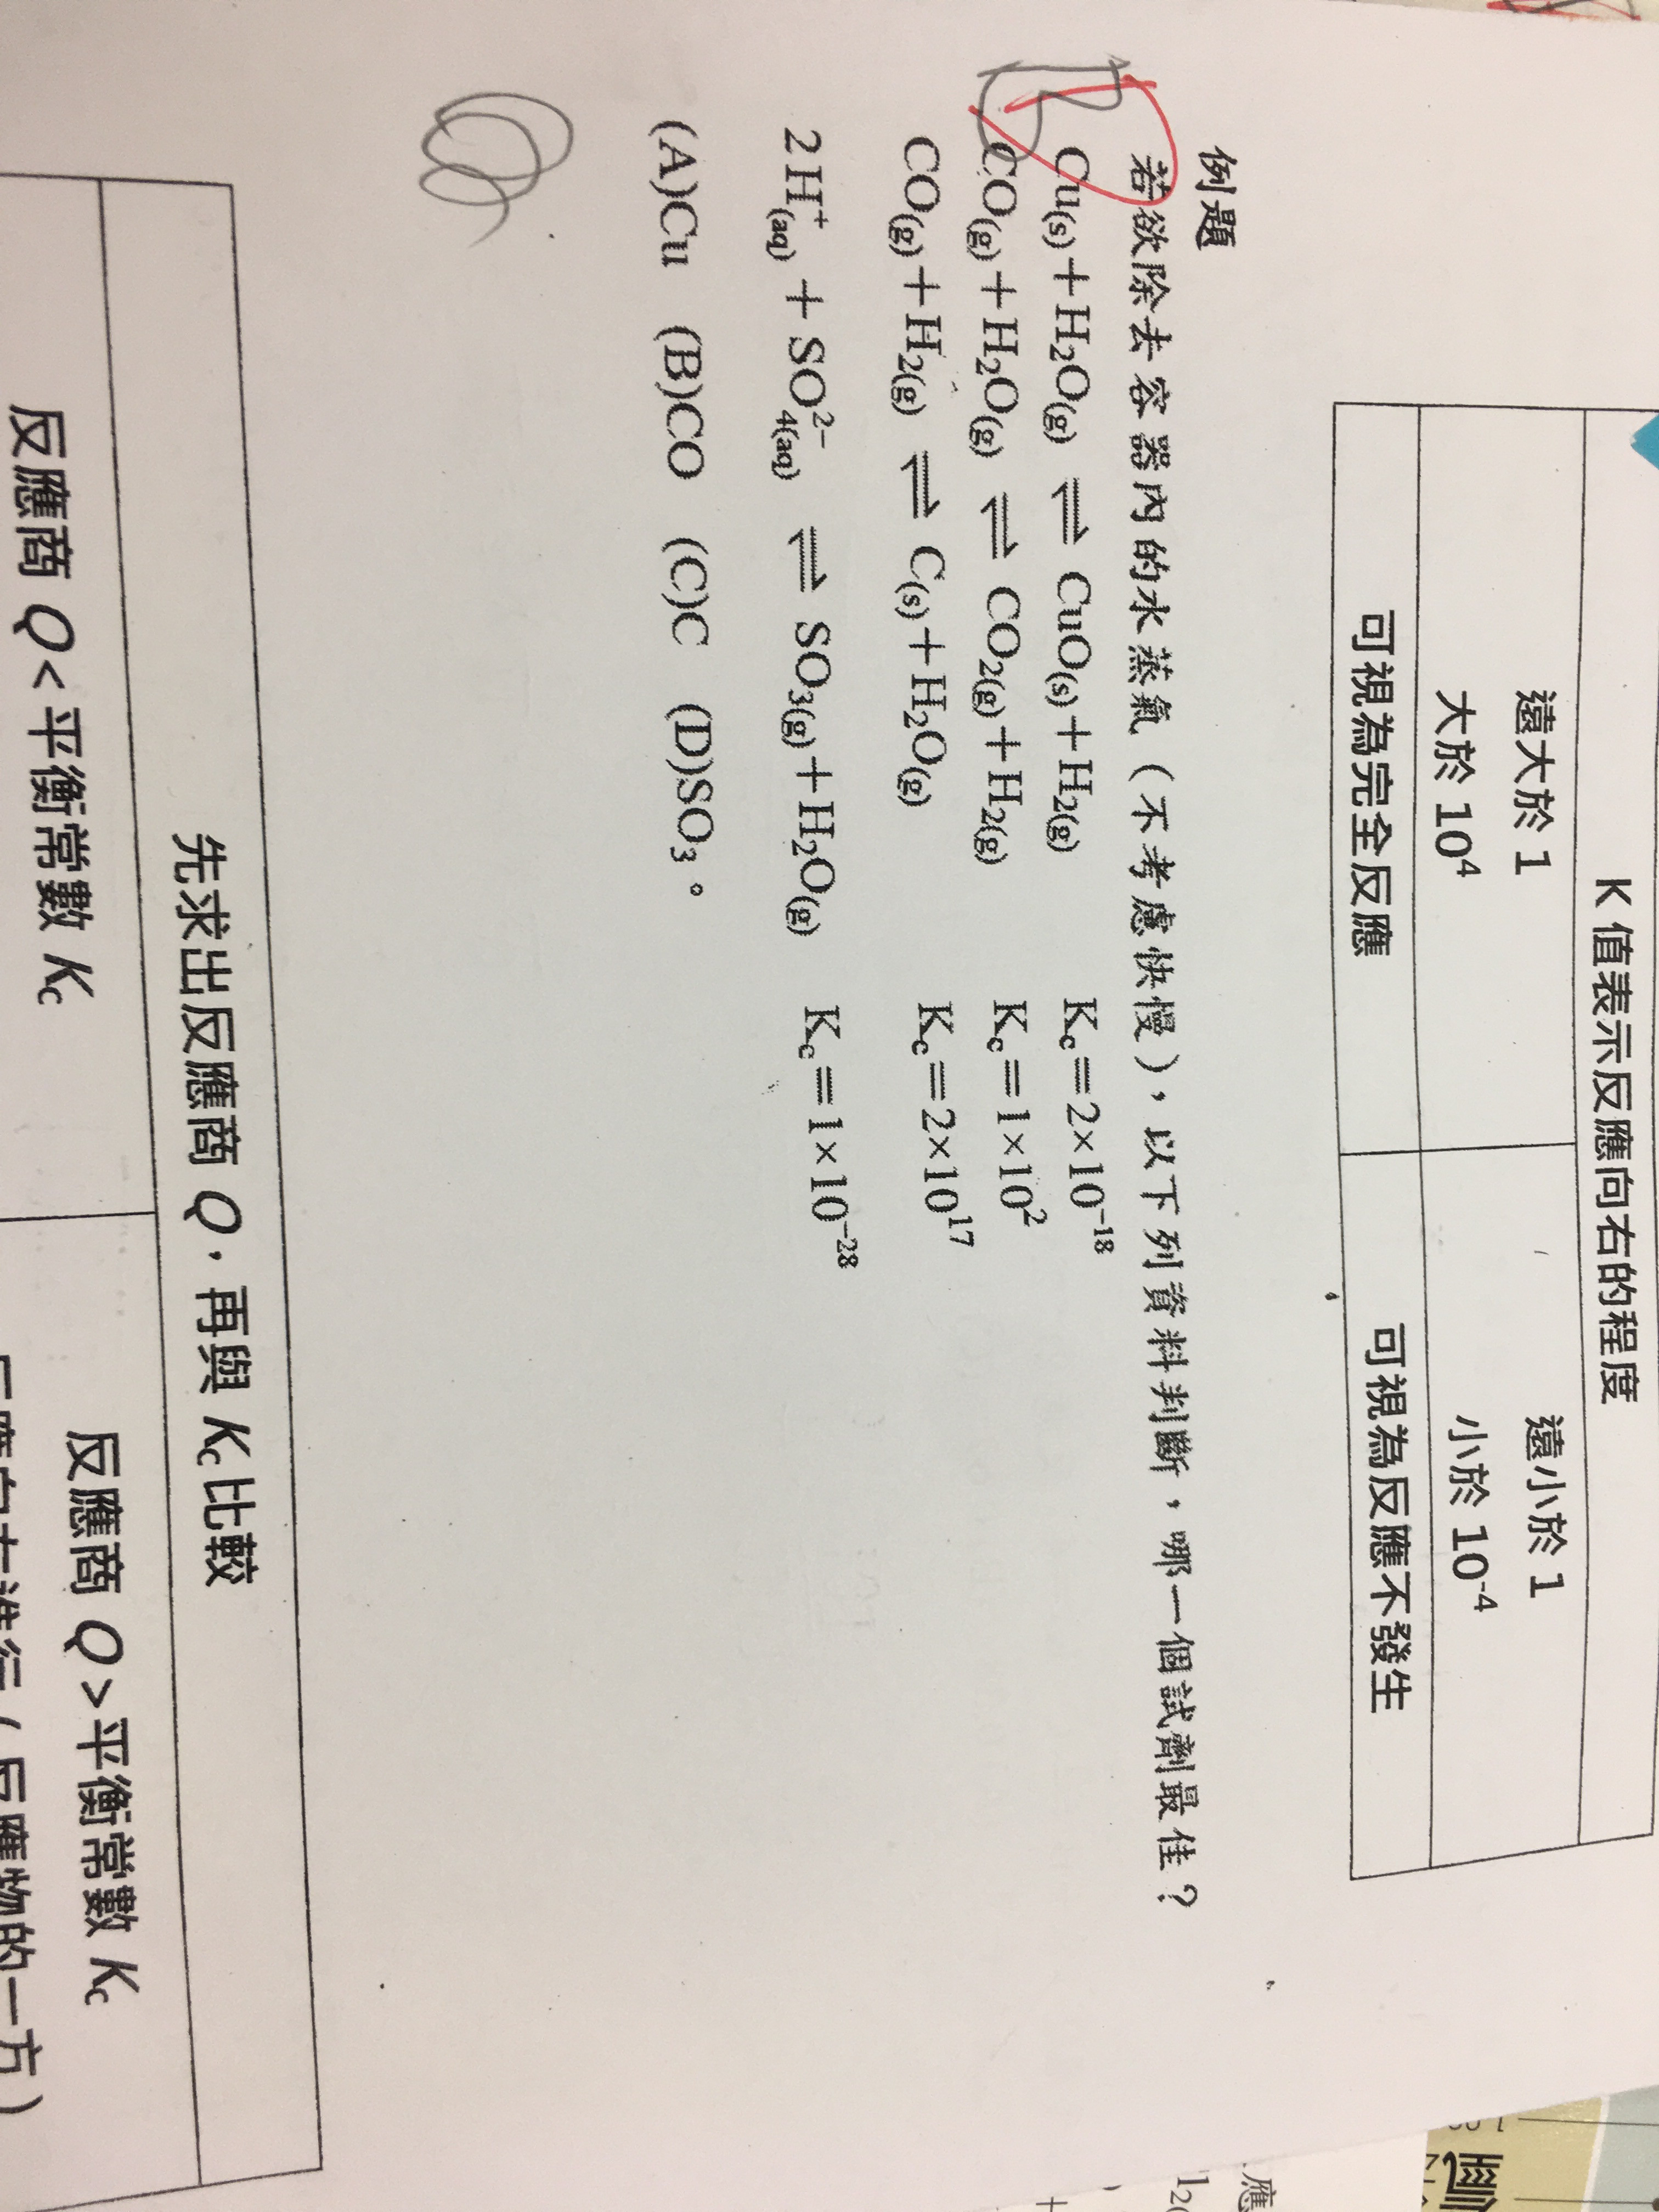 K 值表示反應向右的程度
遠大於 1 遠小於 1
大於 10⁴ 小於 10⁻⁴
可視為完全反應 可視為反應不發生
例題
若欲除去容器內的水蒸氣（不考慮快慢），以下列資料判斷，哪一個試劑最佳？
Cu(s)+H₂O(g) ⇌ CuO(s)+H₂(g) Kc=2×10⁻¹⁸
CO(g)+H₂O(g) ⇌ CO₂(g)+H₂(g) Kc=1×10²
CO(g)+H₂(g) ⇌ C(s)+H₂O(g) Kc=2×10¹⁷
2H⁺(aq) + SO₄²⁻(aq) ⇌ SO₃(g)+H₂O(g) Kc=1×10⁻²⁸
(A)Cu (B)CO (C)C (D)SO₃。
先求出反應商 Q，再與 Kc比較
反應商 Q<平衡常數 Kc 反應商 Q>平衡常數 Kc
反應向左進行（反應物的一方）
應